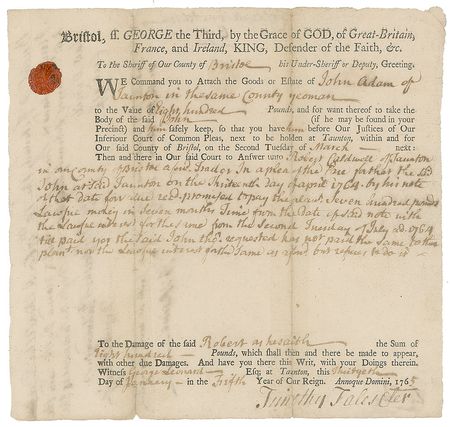 Bristol, ss. GEORGE the Third, by the Grace of GOD, of Great-Britain,
France, and Ireland, KING, Defender of the Faith, &c.
To the Sheriff of Our County of Bristol his Under-Sheriff or Deputy, Greeting.
WE Command you to Attach the Goods or Estate of John Adam of
Taunton in the same County yeoman
to the Value of Eight hundred Pounds, and for want thereof to take the
Body of the said John (if he may be found in your
Precinct) and him safely keep, so that you have him before Our Justices of Our
Inferiour Court of Common Pleas, next to be holden at Taunton, within and for
Our said County of Bristol, on the Second Tuesday of March next:
Then and there in Our said Court to Answer unto Robert Caldwell of Taunton
in our County of Bristol Trador In a plea of the Case for that the sd
John at sd Taunton on the Thirteenth day of april 1764 by his note
of that date for value recd promised to pay the Seven hundred pounds
Lawfue money in Seven months Time from the Date of sd note with
the Lawfue interest for the same from the Second Tuesday of July 1764
the said John tho requested has not paid the same to the
plant nor the Lawfue interest for the Same as but refuses to do it
To the Damage of the said Robert as he saith the Sum of
Eight hundred Pounds, which shall then and there be made to appear,
with other due Damages. And have you there this Writ, with your Doings therein.
Witness George Leonard Esq; at Taunton, this Thirtyeth
Day of January in the Fifth Year of Our Reign. Annoque Domini, 1765
Timothy Fales Cler